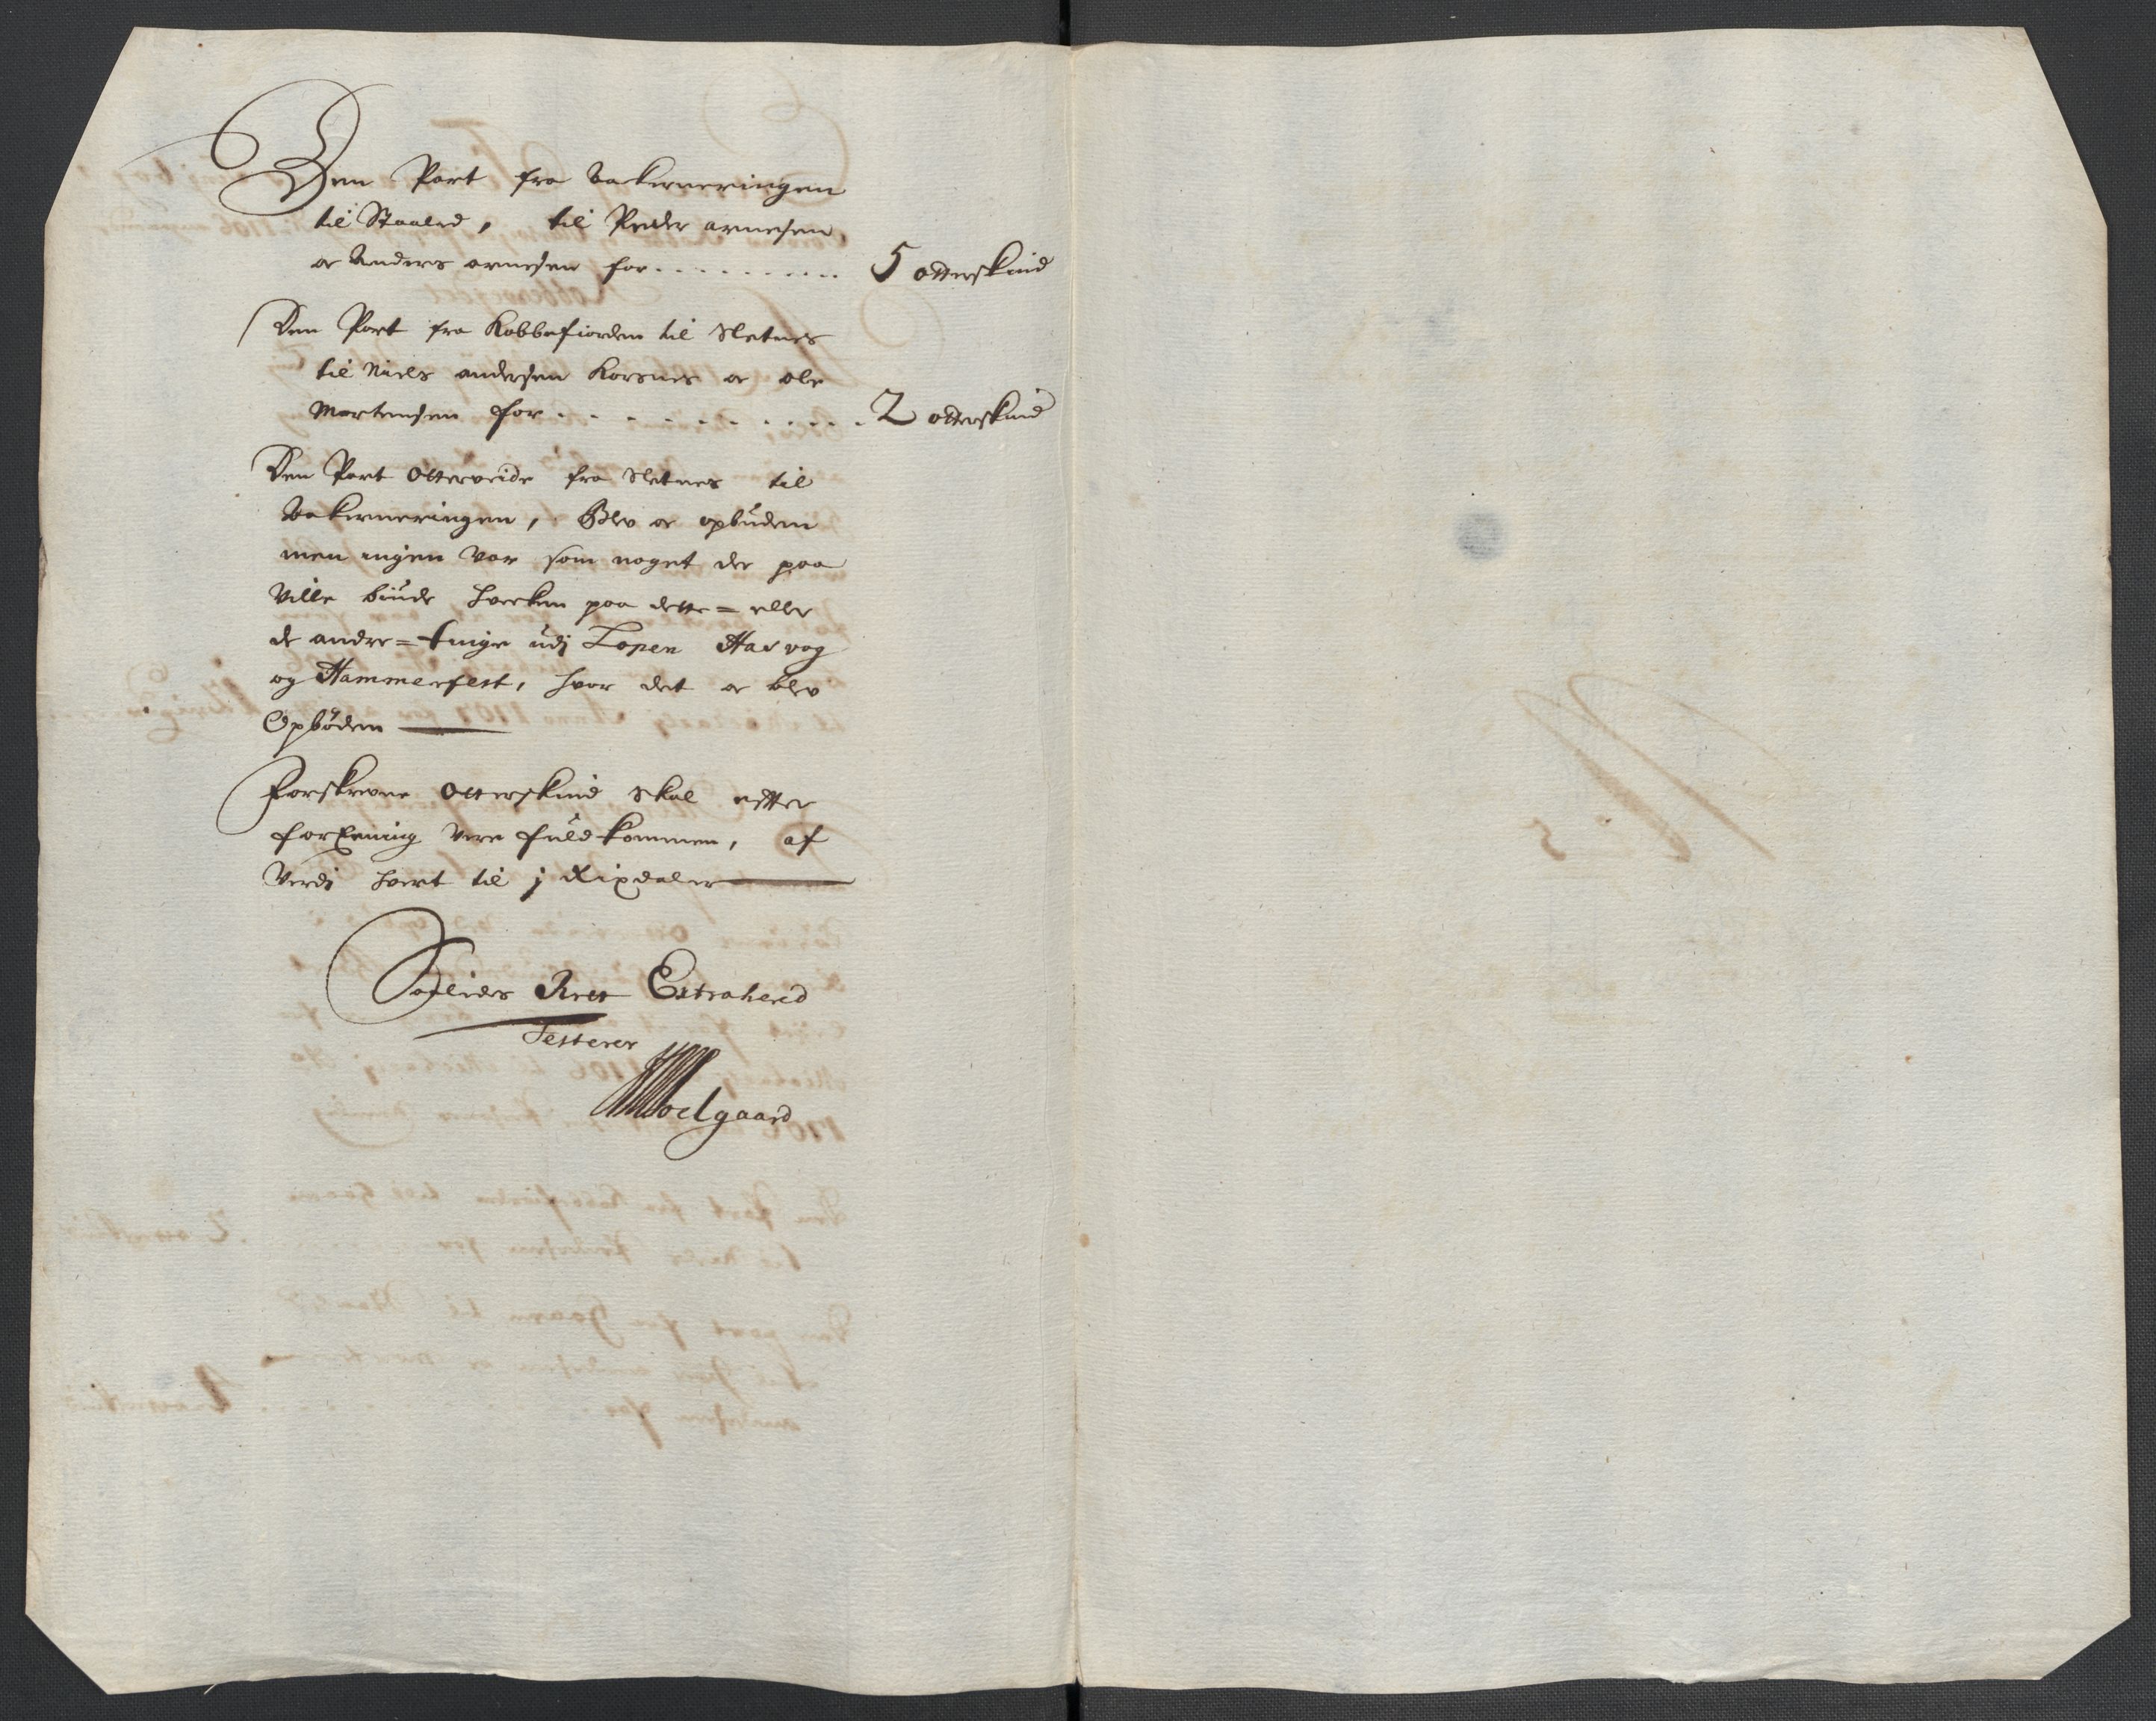 Den Part fra Bakerneringen
til Staaled, til Peder arnesen
oc Anders arnesen for . . . . . . . . . . 5 otterskind
Den Part fra Kobbefiorden til Sletnes
til Niels andersen Korsnes oc ole
Mortensen for . . . . . . . . . . 2 otterskind
Den Part Otterveide fra Sletnes til
Bakerneringen, Blev oc opbuden
men ingen var som noget der paa
Ville biude hverken paa dette = eller
de andre = tinge udj Lopen Hasvog
og Hammerfest, hvor det oc blev
Opböden
Forskrevne Otterskind skal efter
forEening Vere fuldkommen, af
Verdj hvert til j Rixdaler
Saaledes Rett Extraherd
Testerer
Moelgaard